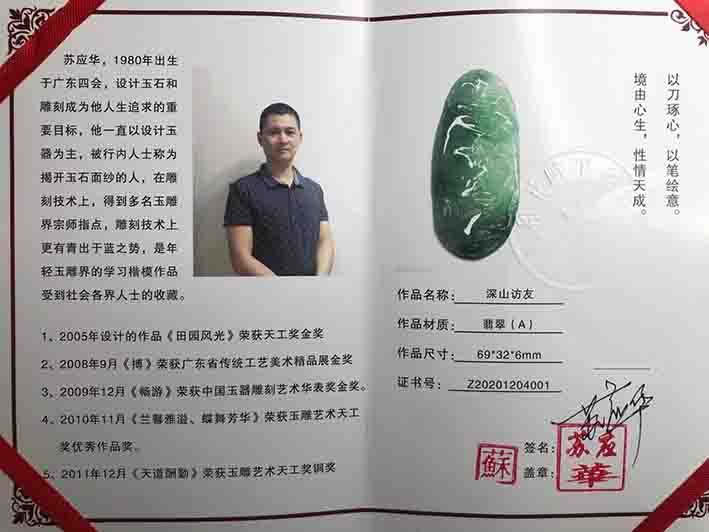 苏应华，1980年出生
于广东四会，设计玉石和
雕刻成为他人生追求的重
要目标，他一直以设计玉
器为主，被行内人士称为
揭开玉石面纱的人，在雕
刻技术上，得到多名玉雕
界宗师指点，雕刻技术上
更有青出于蓝之势，是年
轻玉雕界的学习楷模作品
受到社会各界人士的收藏。
1、2005年设计的作品《田园风光》荣获天工奖金奖
2、2008年9月《博》荣获广东省传统工艺美术精品展金奖
3、2009年12月《畅游》荣获中国玉器雕刻艺术华表奖金奖。
4、2010年11月《兰馨雅溢、蝶舞芳华》荣获玉雕艺术天工
奖优秀作品奖。
5、2011年12月《天道酬勤》荣获玉雕艺术天工奖铜奖
以刀琢心，以笔绘意。
境由心生，性情天成。
作品名称：深山访友
作品材质：翡翠（A）
作品尺寸：69*32*6mm
证书号：Z20201204001
签名：苏应华
盖章：
蘇
苏应
華